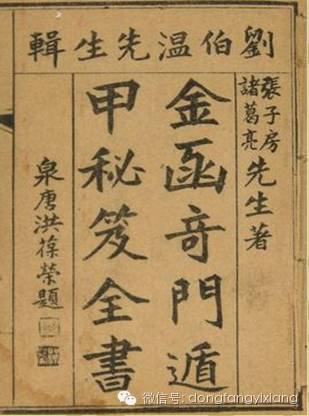 劉伯温先生輯
張子房
諸葛亮
先生著
金函竒門遁
甲秘笈全書
泉唐洪葆榮題
微信号: dongfangyixiang